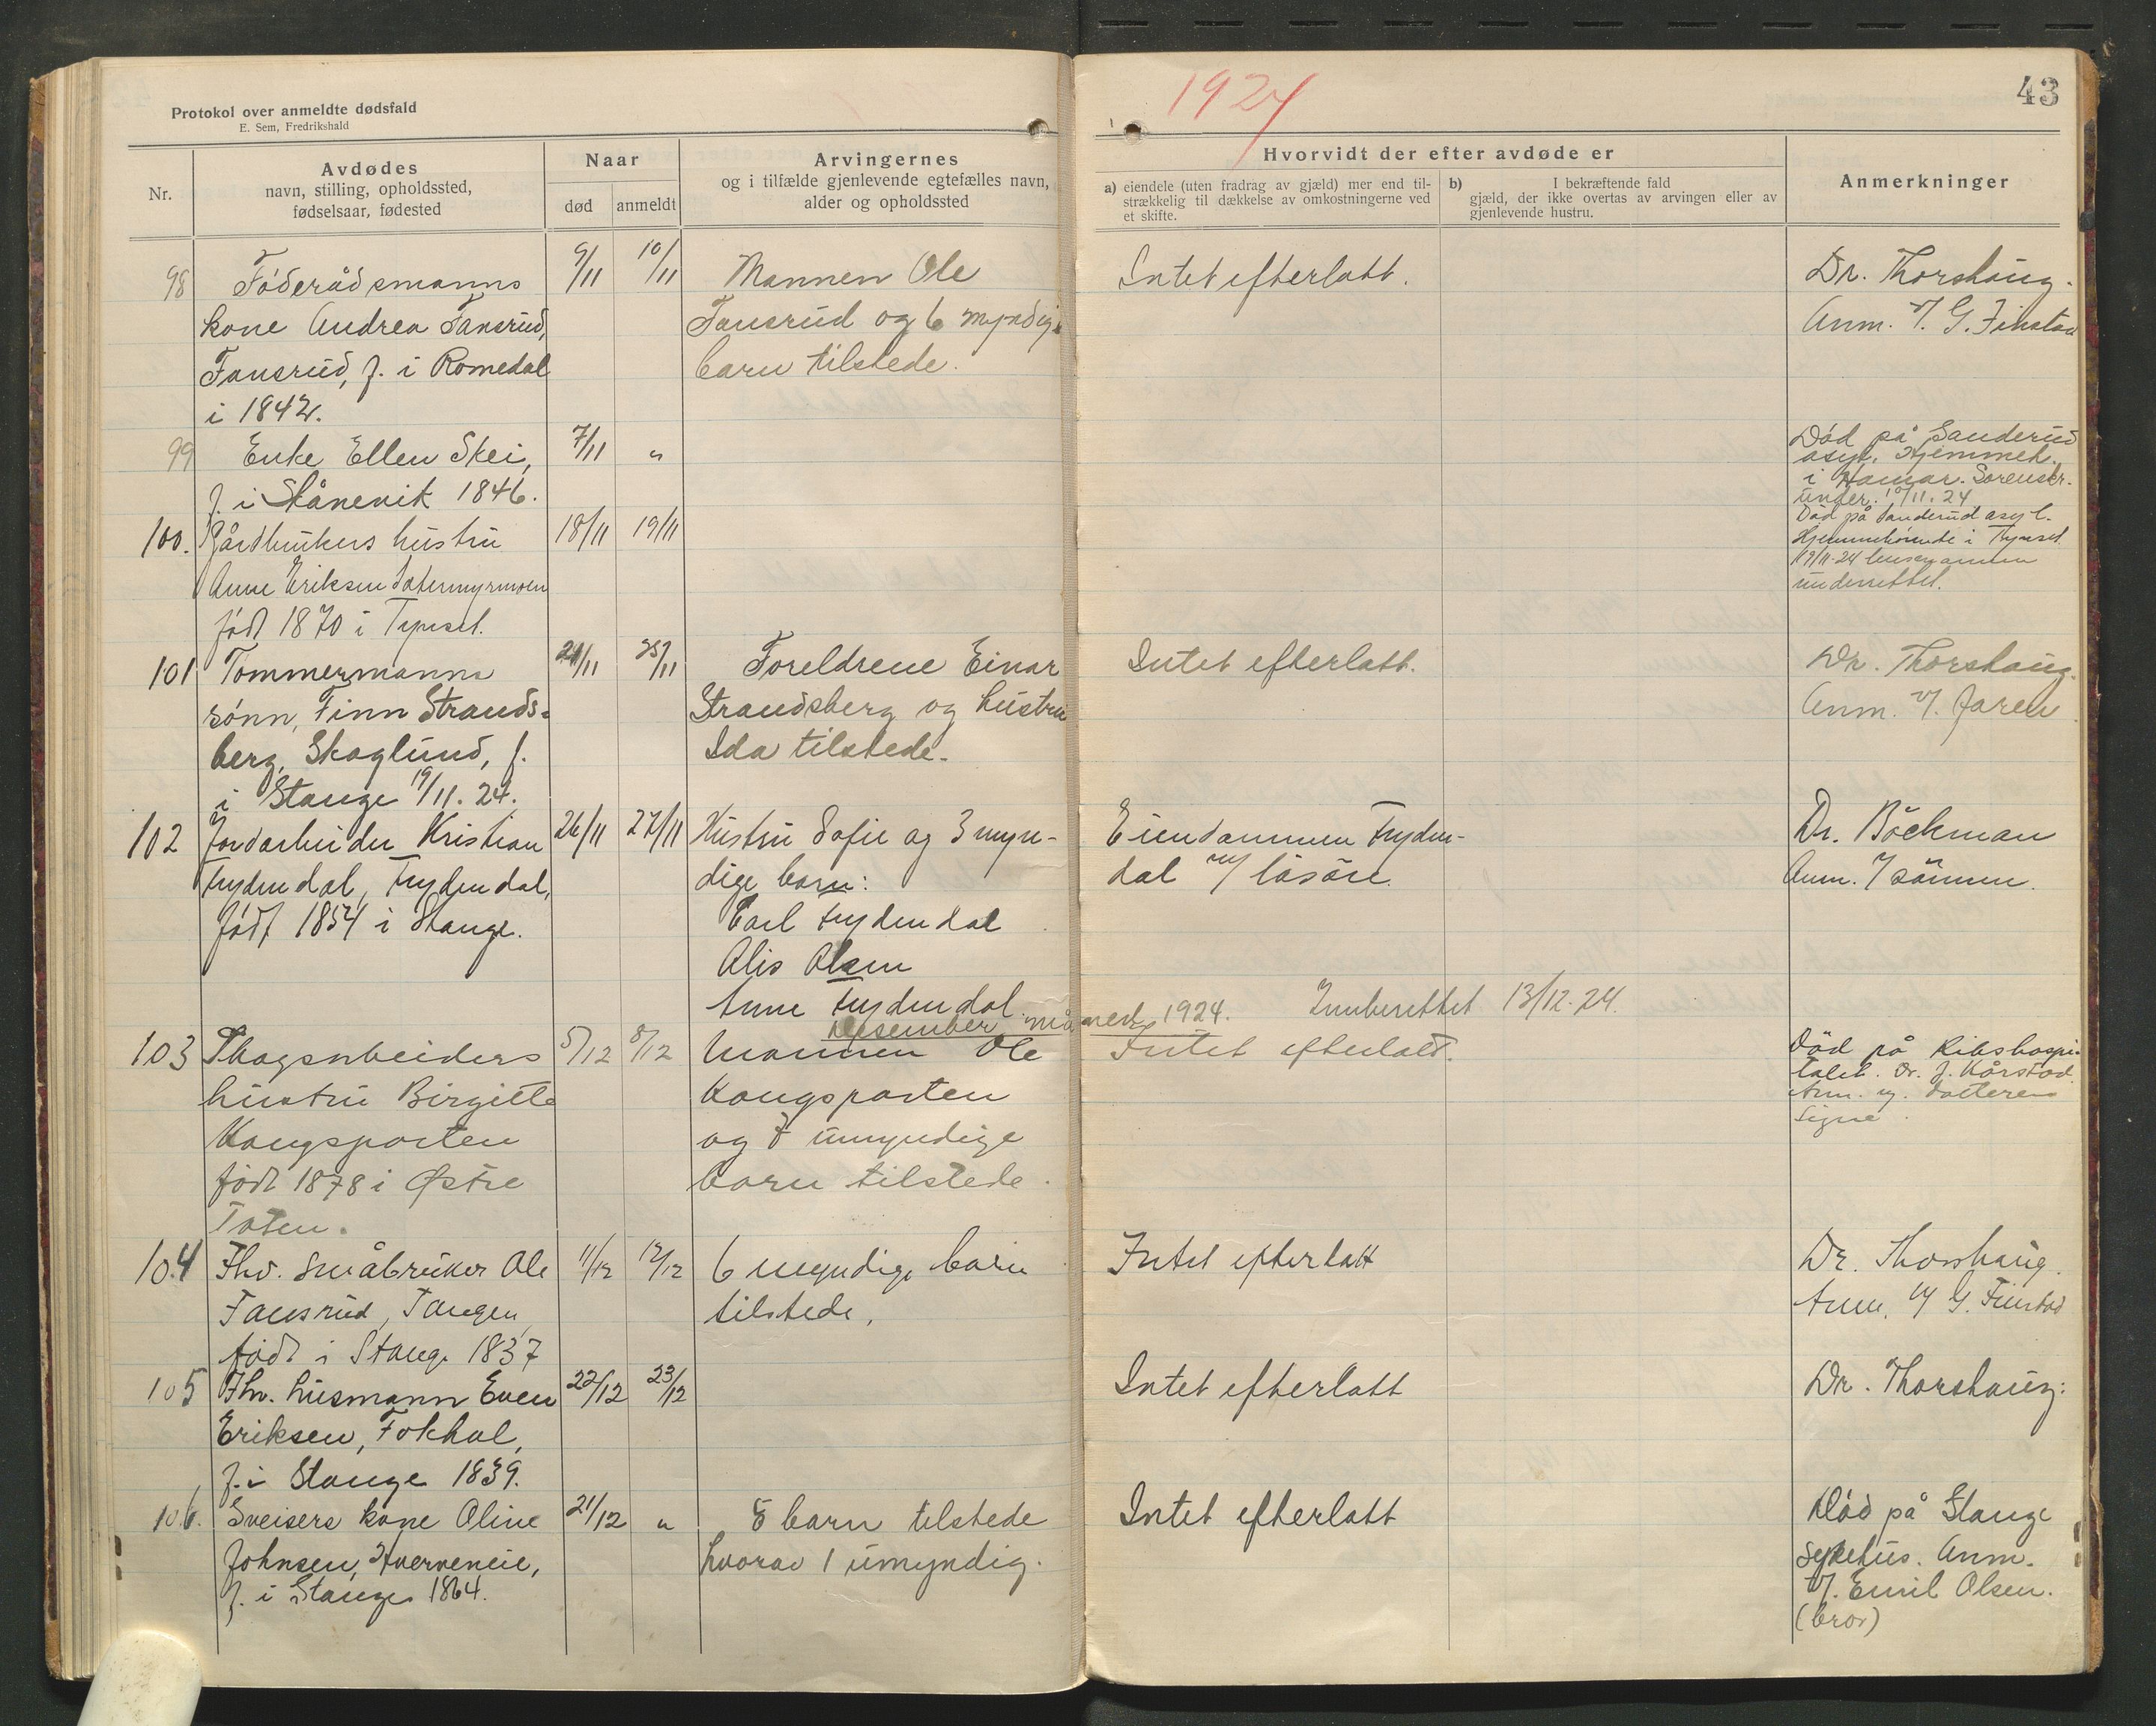 Protokol over anmeldte dødsfald
E. Sem, Fredrikshald
1924
43
Nr.
Avdødes
navn, stilling, opholdssted,
fødselsaar, fødested
Naar
død
anmeldt
Arvingernes
og i tilfælde gjenlevende egtefælles navn,
alder og opholdssted
Hvorvidt der efter avdøde er
a) eiendele (uten fradrag av gjæld) mer end til-
strækkelig til dækkelse av omkostningerne ved
et skifte.
b) I bekræftende fald
gjæld, der ikke overtas av arvingen eller av
gjenlevende hustru.
Anmerkninger
98
Föderådsmanns
kone Andrea Tansrud,
Tansrud, f. i Romedal
i 1842.
9/11
10/11
Mannen Ole
Tansrud og 6 myndige
barn tilstede.
Intet efterlatt.
Dr. Thorshaug.
Anm. v/. G. Finstad
99
Enke Ellen Skei,
f. i Skånevik 1846.
7/11
"
Död på Sanderud
asyl. Hjemmeh.
i Hamar. Sorenskr.
under. 10/11. 24
100.
Gårdbrukers hustru
Anne Eriksen Satermyrmoen
född 1870 i Tynset.
18/11
19/11
Död på Sanderud asyl.
Hjemmehörende i Tynset.
19/11-24 lensmannen
underrettet.
101
Tömmermanns
sönn, Finn Strands-
berg, Skoglund, f.
i Stange 19/11. 24.
24/11
25/11
Foreldrene Einar
Strandsberg og hustru
Ida tilstede.
Intet efterlatt.
Dr. Thorshaug.
Anm. v/. Jaren
102
Jordarbeider Kristian
Frydendal, Frydendal,
född 1854 i Stange.
26/11
27/11
Hustru Sofie og 3 myn-
dige barn:
Carl Frydendal
Alis Olsen
Anne Frydendal
Eiendommen Fryden-
dal m/ lösöre.
Dr. Böckman
Anm. v/ sönnen.
Desember måned 1924. Innberettet 13/12. 24.
103
Skogsarbeiders
hustru Birgitte
Kongsparten
född 1878 i Østre
Toten.
5/12
8/12
Mannen Ole
Kongsparten
og 7 umyndige
barn tilstede.
Intet efterlatt.
Död på Rikshospi-
talet. Dr. J. Kårstad.
Anm. v/. datteren
Signe.
104
Fhv. småbruker Ole
Tansrud, Tangen,
född i Stange 1837
11/12
12/12
6 myndige barn
tilstede.
Intet efterlatt
Dr. Thorshaug.
Anm. v/ G. Finstad
105
Fhv. husmann Even
Eriksen, Fokhol,
f. i Stange 1839.
22/12
23/12
Intet efterlatt
Dr. Thorshaug.
106.
Sveisers kone Oline
Johnsen, Hverveneie,
f. i Stange 1864.
21/12
"
5 barn tilstede
hvorav 1 umyndig.
Intet efterlatt
Död på Stange
sykehus. Anm.
v/. Emil Olsen.
(bror)